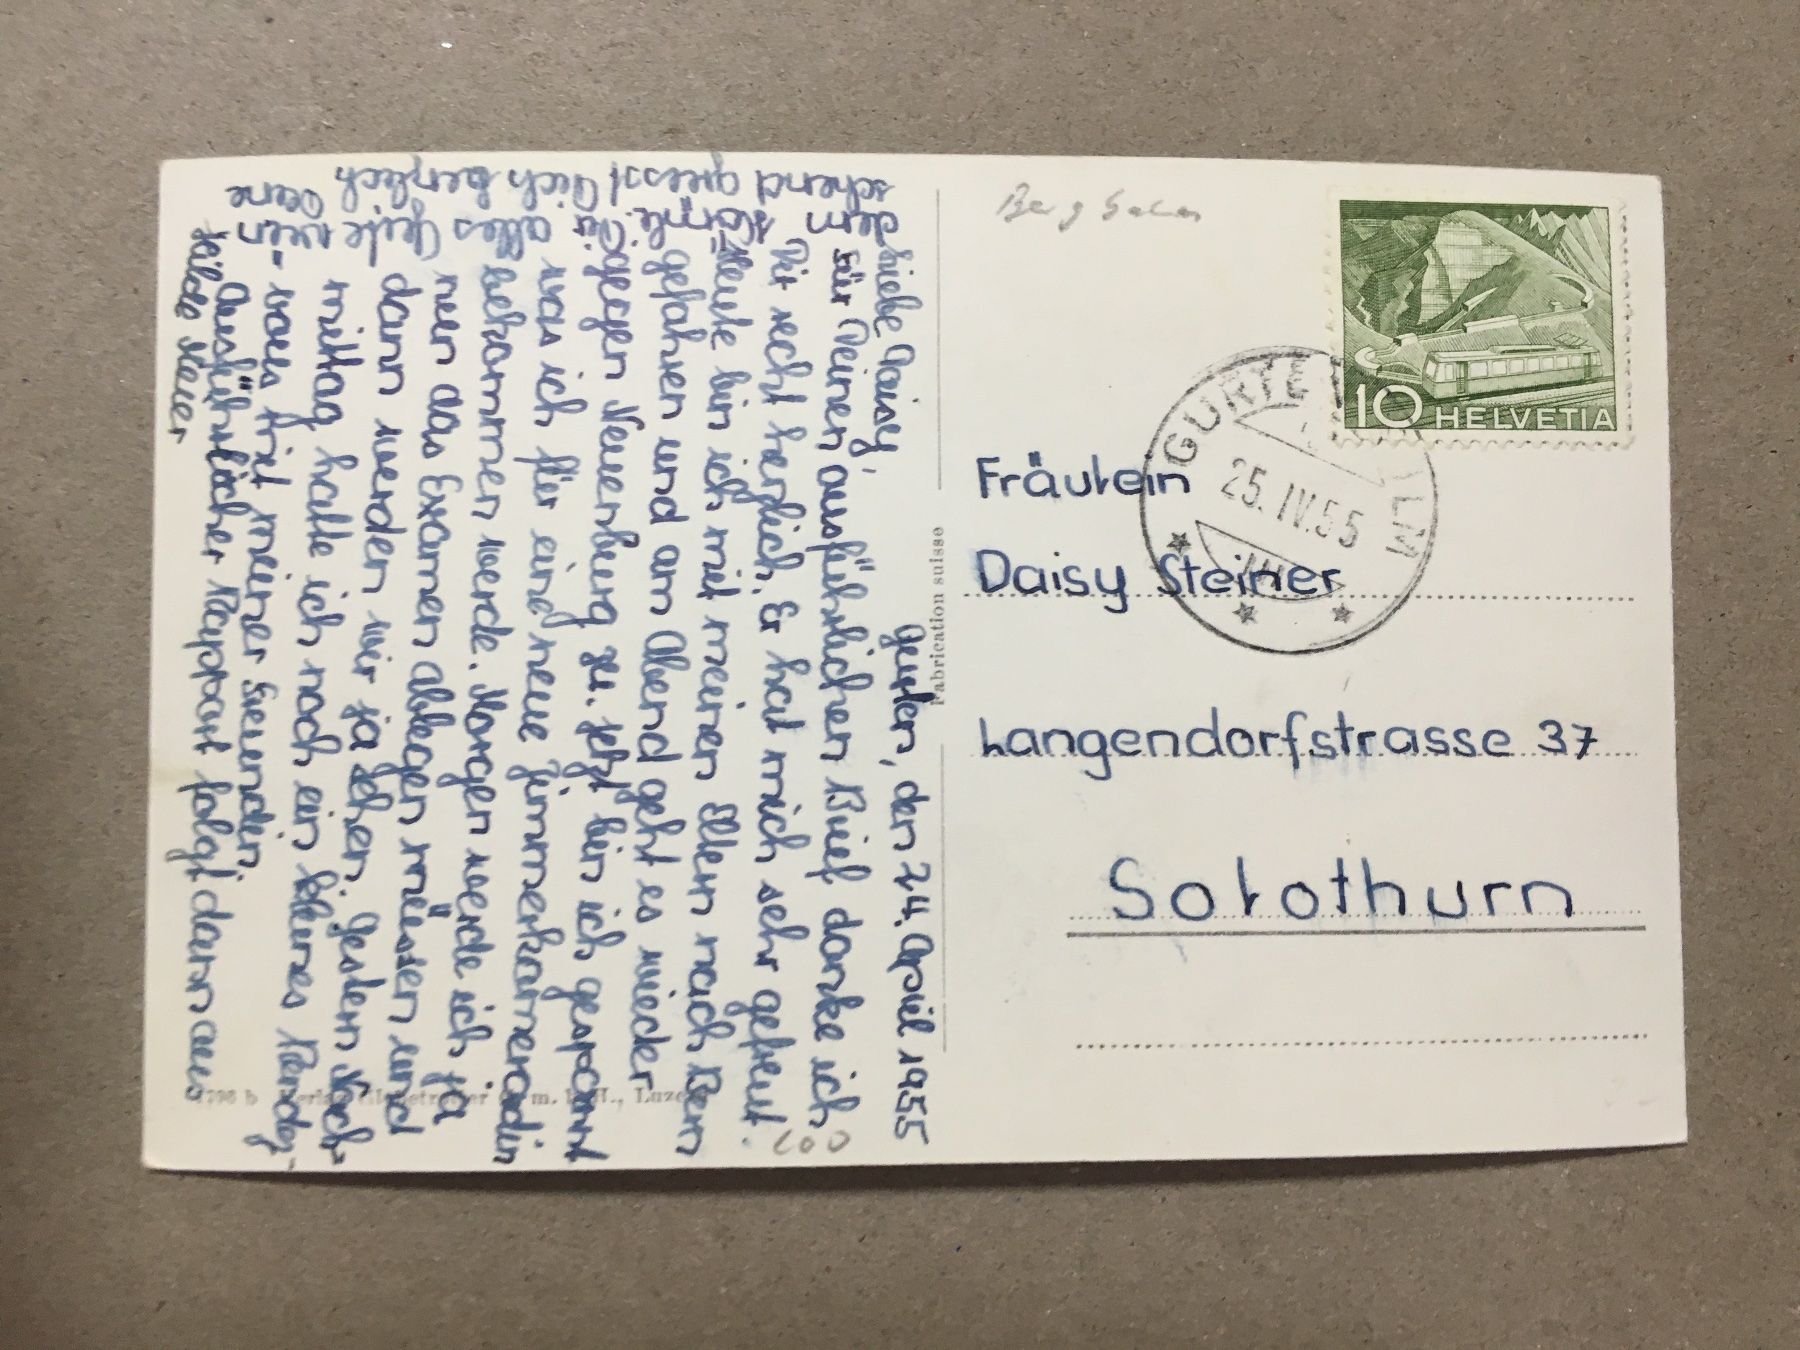 Gurten, den 24. April 1955
Liebe Daisy,
Für Deinen ausführlichen Brief danke ich
Dir recht herzlich. Er hat mich sehr gefreut.
Heute bin ich mit meinen Eltern nach Bern
gefahren und am Abend geht es wieder
gegen Neuenburg zu. Jetzt bin ich gespannt
was ich für eine neue Zimmerkameradin
bekommen werde. Morgen werde ich ja
nun das Examen ablegen müssen und
dann werden wir ja sehen. Gestern Nach-
mittag hatte ich noch ein kleines Rendez-
vous mit meiner Freundin.
Ausführlicher Rapport folgt dann aus
dem Störmli. Dir alles Gute wün-
schend grüsst Dich herzlich Deine
Hilde
Fabrication suisse
1796 b Verlag Globetrotter G. m. b. H., Luzern
Fräulein
Daisy Steiner
Langendorfstrasse 37
Solothurn
10 HELVETIA
25.IV.55